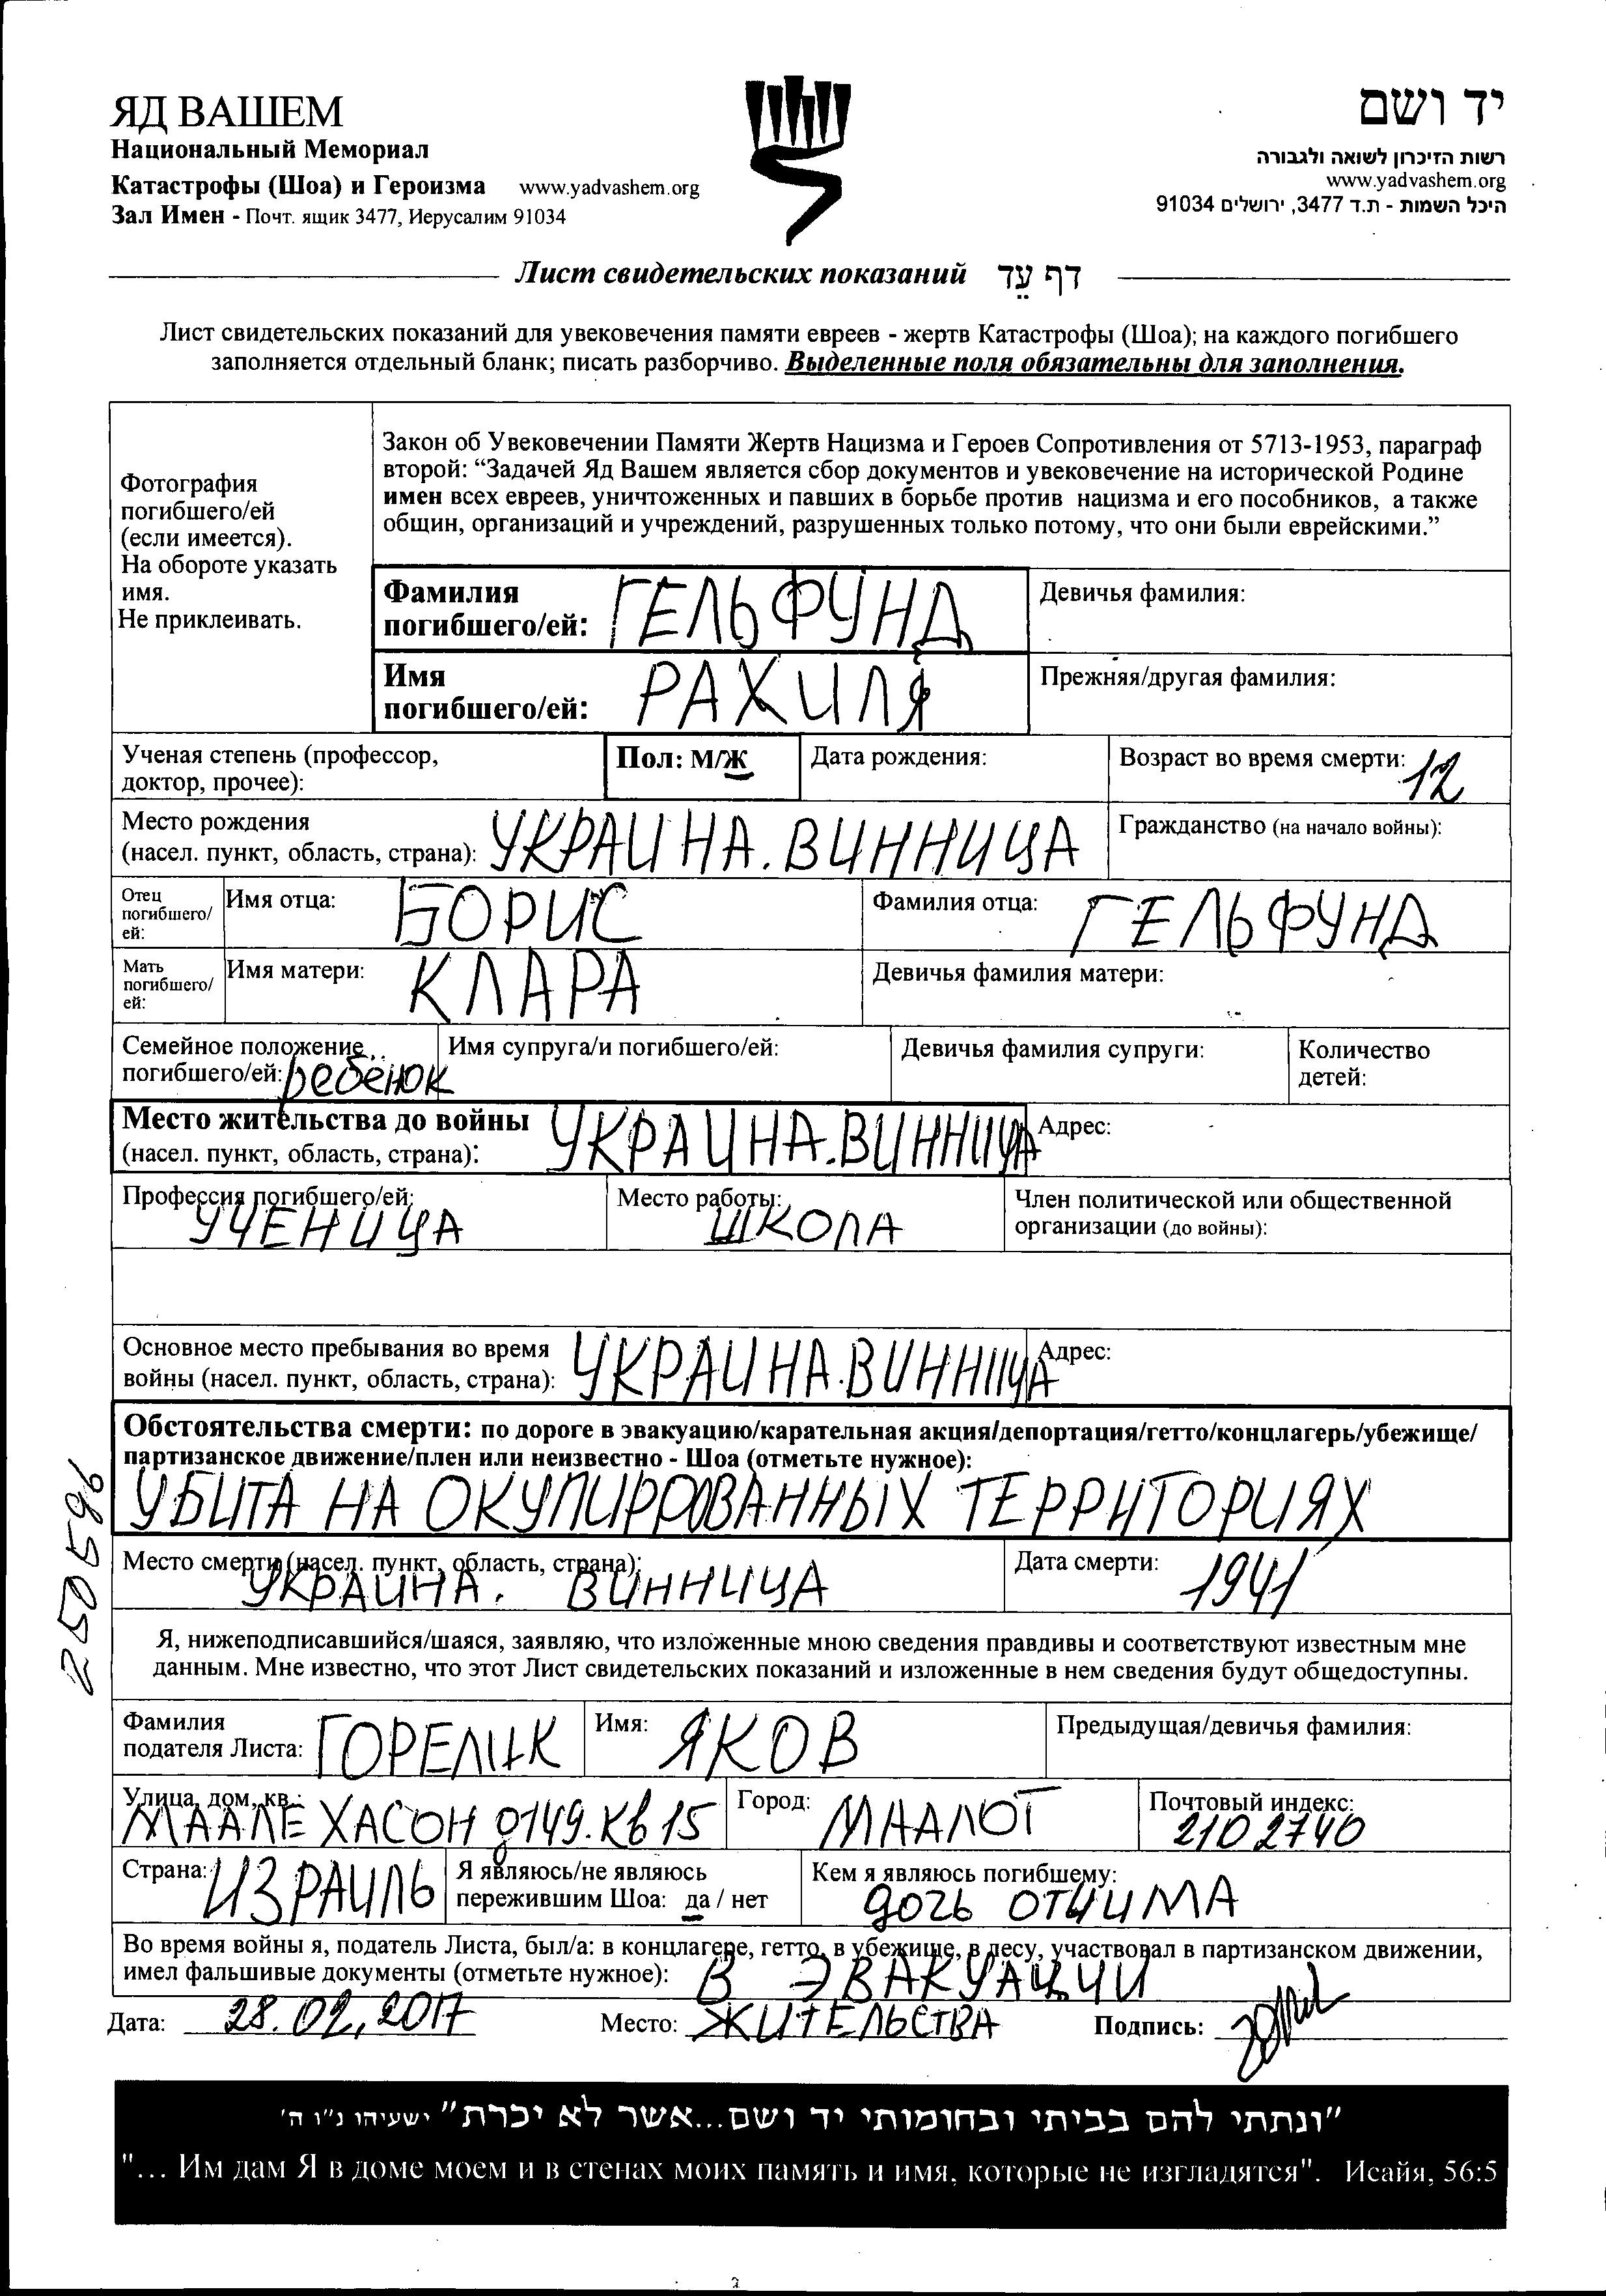 ЯД ВАШЕМ
Национальный Мемориал
Катастрофы (Шоа) и Героизма www.yadvashem.org
Зал Имен - Почт. ящик 3477, Иерусалим 91034
יד ושם
רשות הזיכרון לשואה ולגבורה
www.yadvashem.org
היכל השמות - ת.ד 3477, ירושלים 91034
Лист свидетельских показаний דף עֵד
Лист свидетельских показаний для увековечения памяти евреев - жертв Катастрофы (Шоа); на каждого погибшего
заполняется отдельный бланк; писать разборчиво. Выделенные поля обязательны для заполнения.
Фотография
погибшего/ей
(если имеется).
На обороте указать
имя.
Не приклеивать.
Закон об Увековечении Памяти Жертв Нацизма и Героев Сопротивления от 5713-1953, параграф
второй: “Задачей Яд Вашем является сбор документов и увековечение на исторической Родине
имен всех евреев, уничтоженных и павших в борьбе против нацизма и его пособников, а также
общин, организаций и учреждений, разрушенных только потому, что они были еврейскими.”
Фамилия
погибшего/ей: ГЕЛЬФУНД
Девичья фамилия:
Имя
погибшего/ей: РАХИЛЯ
Прежняя/другая фамилия:
Ученая степень (профессор,
доктор, прочее):
Пол: М/Ж
Дата рождения:
Возраст во время смерти: 12
Место рождения
(насел. пункт, область, страна): УКРАИНА. ВИННИЦА
Гражданство (на начало войны):
Отец
погибшего/
ей:
Имя отца: БОРИС
Фамилия отца: ГЕЛЬФУНД
Мать
погибшего/
ей:
Имя матери: КЛАРА
Девичья фамилия матери:
Семейное положение
погибшего/ей: ребёнок
Имя супруга/и погибшего/ей:
Девичья фамилия супруги:
Количество
детей:
Место жительства до войны
(насел. пункт, область, страна): УКРАИНА. ВИННИЦА
Адрес:
Профессия погибшего/ей:
УЧЕНИЦА
Место работы:
ШКОЛА
Член политической или общественной
организации (до войны):
Основное место пребывания во время
войны (насел. пункт, область, страна): УКРАИНА. ВИННИЦА
Адрес:
Обстоятельства смерти: по дороге в эвакуацию/карательная акция/депортация/гетто/концлагерь/убежище/
партизанское движение/плен или неизвестно - Шоа (отметьте нужное):
УБИТА НА ОКУПИРОВАННЫХ ТЕРРИТОРИЯХ
Место смерти (насел. пункт, область, страна):
УКРАИНА. ВИННИЦА
Дата смерти: 1941
250596
Я, нижеподписавшийся/шаяся, заявляю, что изложенные мною сведения правдивы и соответствуют известным мне
данным. Мне известно, что этот Лист свидетельских показаний и изложенные в нем сведения будут общедоступны.
Фамилия
подателя Листа: ГОРЕЛИК
Имя: ЯКОВ
Предыдущая/девичья фамилия:
Улица, дом, кв.:
МААЛЕ ХАСОН д149. кв 15
Город: МААЛОТ
Почтовый индекс:
2102740
Страна: ИЗРАИЛЬ
Я являюсь/не являюсь
пережившим Шоа: да / нет
Кем я являюсь погибшему:
дочь ОТЧИМА
Во время войны я, податель Листа, был/а: в концлагере, гетто, в убежище, в лесу, участвовал в партизанском движении,
имел фальшивые документы (отметьте нужное): В ЭВАКУАЦИИ
Дата: 28.02.2017 Место: ЖИТЕЛЬСТВА Подпись:
"ונתתי להם בביתי ובחומותי יד ושם...אשר לא יכרת" ישעיהו נ"ו ה'
"... Им дам Я в доме моем и в стенах моих память и имя, которые не изгладятся". Исайя, 56:5